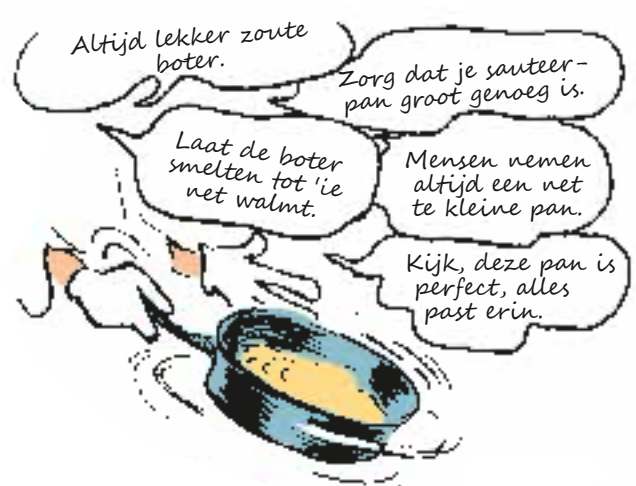 Altijd lekker zoute
boter.
Zorg dat je sauteer-
pan groot genoeg is.
Laat de boter
smelten tot 'ie
net walmt.
Mensen nemen
altijd een net
te kleine pan.
Kijk, deze pan is
perfect, alles
past erin.